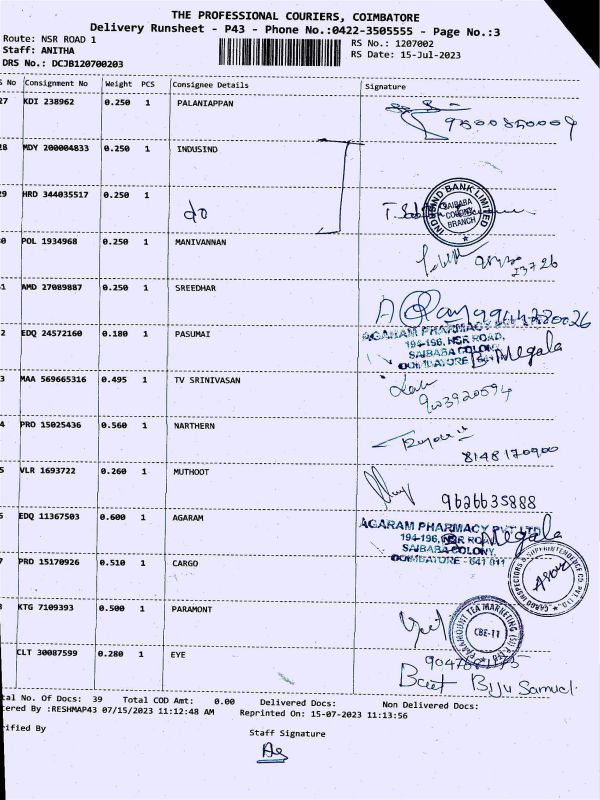 THE PROFESSIONAL COURIERS, COIMBATORE
Delivery Runsheet - P43 - Phone No.:0422-3505555 - Page No.:3
Route: NSR ROAD 1
RS No.: 1207002
Staff: ANITHA
RS Date: 15-Jul-2023
DRS No.: DCJB120700203
S No Consignment No Weight PCS Consignee Details Signature
27 KDI 238962 0.250 1 PALANIAPPAN
28 MDY 200004833 0.250 1 INDUSIND
29 HRD 344035517 0.250 1 do
INDUSIND BANK LIMITED
SAIBABA
COLONY
BRANCH
0 POL 1934968 0.250 1 MANIVANNAN
23726
1 AMD 27089887 0.250 1 SREEDHAR
2 EDQ 24572160 0.180 1 PASUMAI
AGARAM PHARMACY
194-196, NSR ROAD,
SAIBABA COLONY,
COIMBATORE
B. Megala
3 MAA 569665316 0.495 1 TV SRINIVASAN
4 PRO 15025436 0.560 1 NARTHERN
8148170900
5 VLR 1693722 0.260 1 MUTHOOT
9626635888
6 EDQ 11367503 0.600 1 AGARAM
AGARAM PHARMACY PVT LTD
194-196, NSR ROAD
SAIBABA COLONY,
COIMBATORE - 641 011
B. Megala
7 PRO 15170926 0.510 1 CARGO
CARGO INSPECTORS & SUPERINTENDENCE CO. PVT. LTD.
8 KTG 7109393 0.500 1 PARAMONT
PARAMOUNT TEA MARKETING
CBE-11
CLT 30087599 0.280 1 EYE
Biju Samuel
tal No. Of Docs: 39 Total COD Amt: 0.00 Delivered Docs: Non Delivered Docs:
tered By :RESHMAP43 07/15/2023 11:12:48 AM Reprinted On: 15-07-2023 11:13:56
rified By
Staff Signature